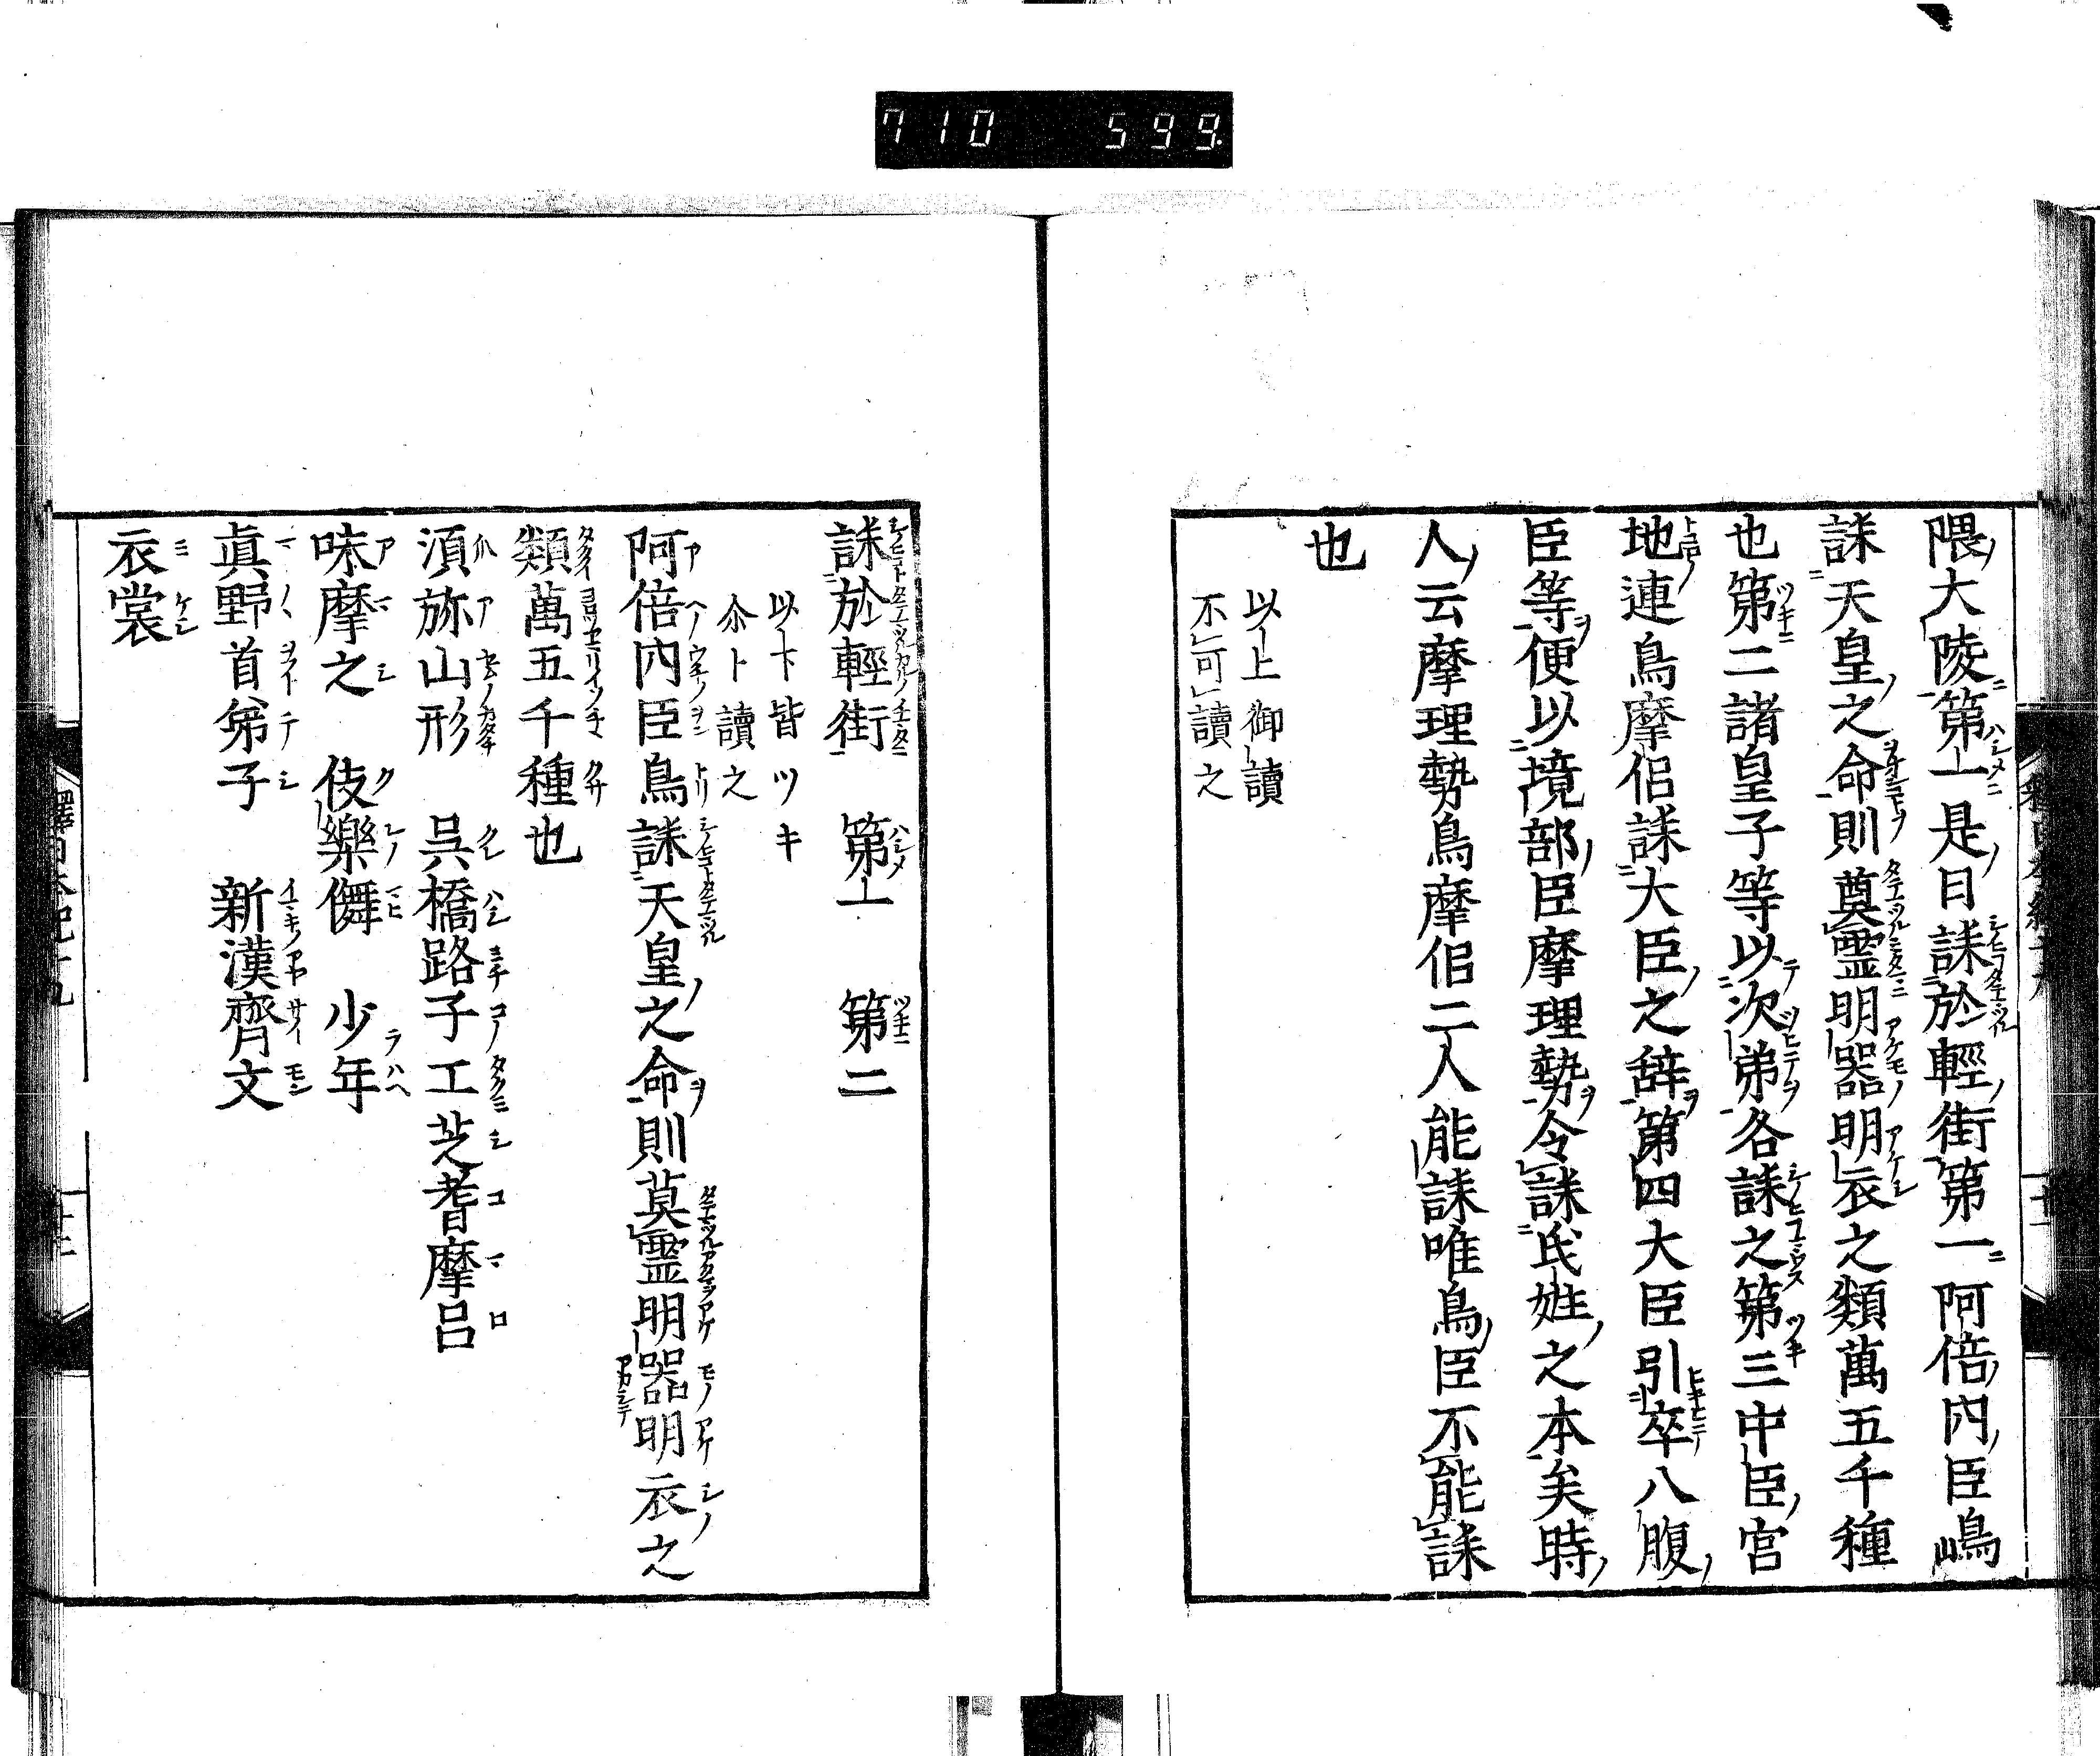 710 599
隈大陵第一是日誄於輕街第一阿倍内臣鳥
誄天皇之命則奠霊明器明衣之類萬五千種
也第二諸皇子等以次弟各誄之第三中臣宮
地連鳥摩侶誄大臣之辞第四大臣引卒八腹
臣等便以境部臣摩理勢令誄氏姓之本矣時
人云摩理勢鳥摩侶二人能誄唯鳥臣不能誄
也
以上御讀
不可讀之
誄於輕街 第一 第二
以下皆ツキ
尒ト讀之
阿倍内臣鳥誄天皇之命則奠霊明器明衣之
類萬五千種也
須弥山形 呉橋路子工芝耆摩呂
味摩之 伎樂儛 少年
眞野首弟子 新漢齊文
衣裳